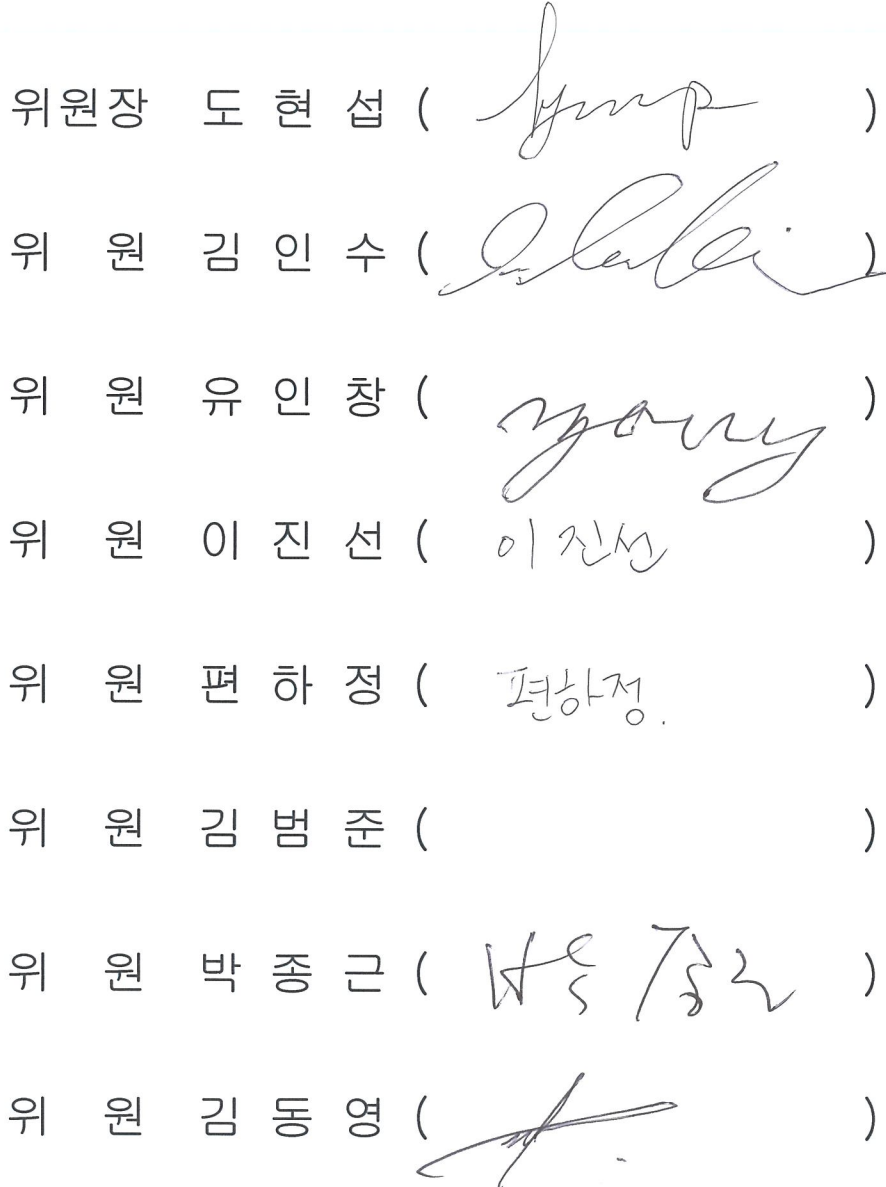 위원장 도 현 섭 ( )
위 원 김 인 수 ( )
위 원 유 인 창 ( )
위 원 이 진 선 ( 이진선 )
위 원 편 하 정 ( 편하정. )
위 원 김 범 준 ( )
위 원 박 종 근 ( 박종근 )
위 원 김 동 영 ( )